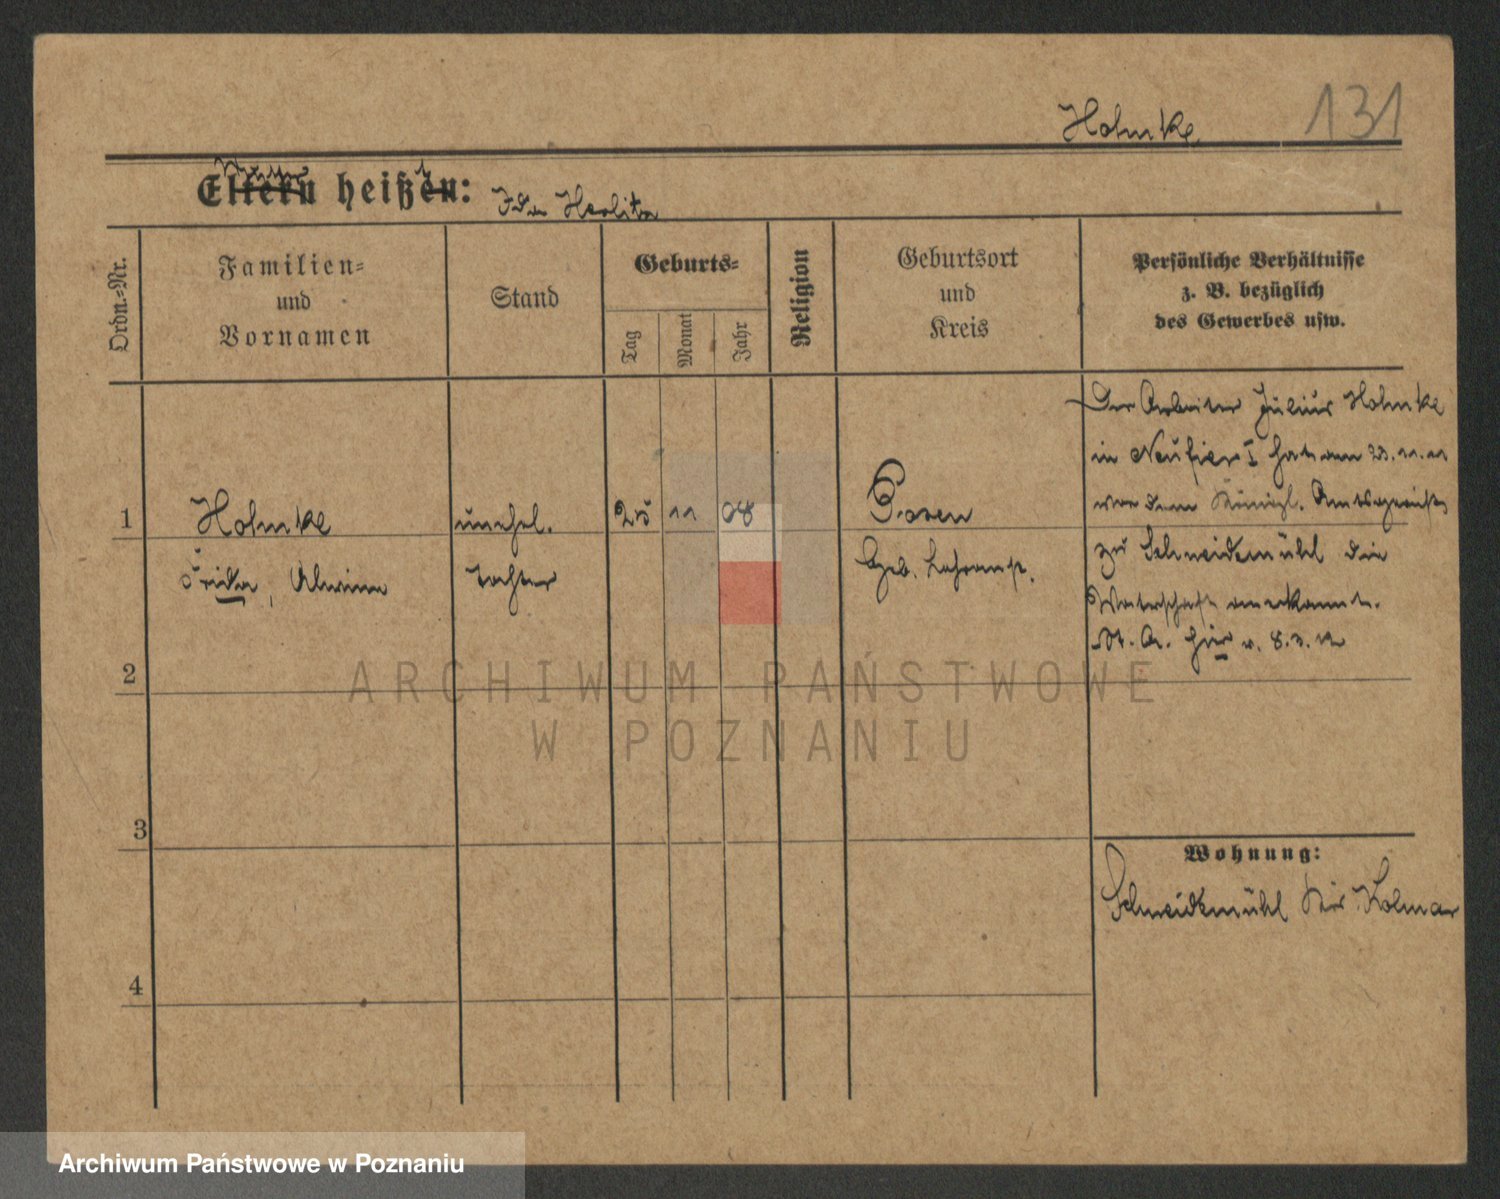 Hohmke 131
Mutter
Eltern heißen: Ida Herlitz
Ordn.-Nr.
Familien-
und
Vornamen
Stand
Geburts-
Tag
Monat
Jahr
Religion
Geburtsort
und
Kreis
Persönliche Verhältnisse
z. B. bezüglich
des Gewerbes usw.
1
Hohmke
Frida, Alwine
unehel.
Tochter
25 11 08
Posen
Geb. Lehranst.
Der Arbeiter Julius Hohmke
in I hat am 23.11.11
vor dem Königl. Amtsgericht
zu Schneidemühl die
Vaterschaft anerkannt.
St. A. hier v. 8.3.12
2
3
4
Wohnung:
Schneidemühl Krs Kolmar
ARCHIWUM PAŃSTWOWE
W POZNANIU
Archiwum Państwowe w Poznaniu